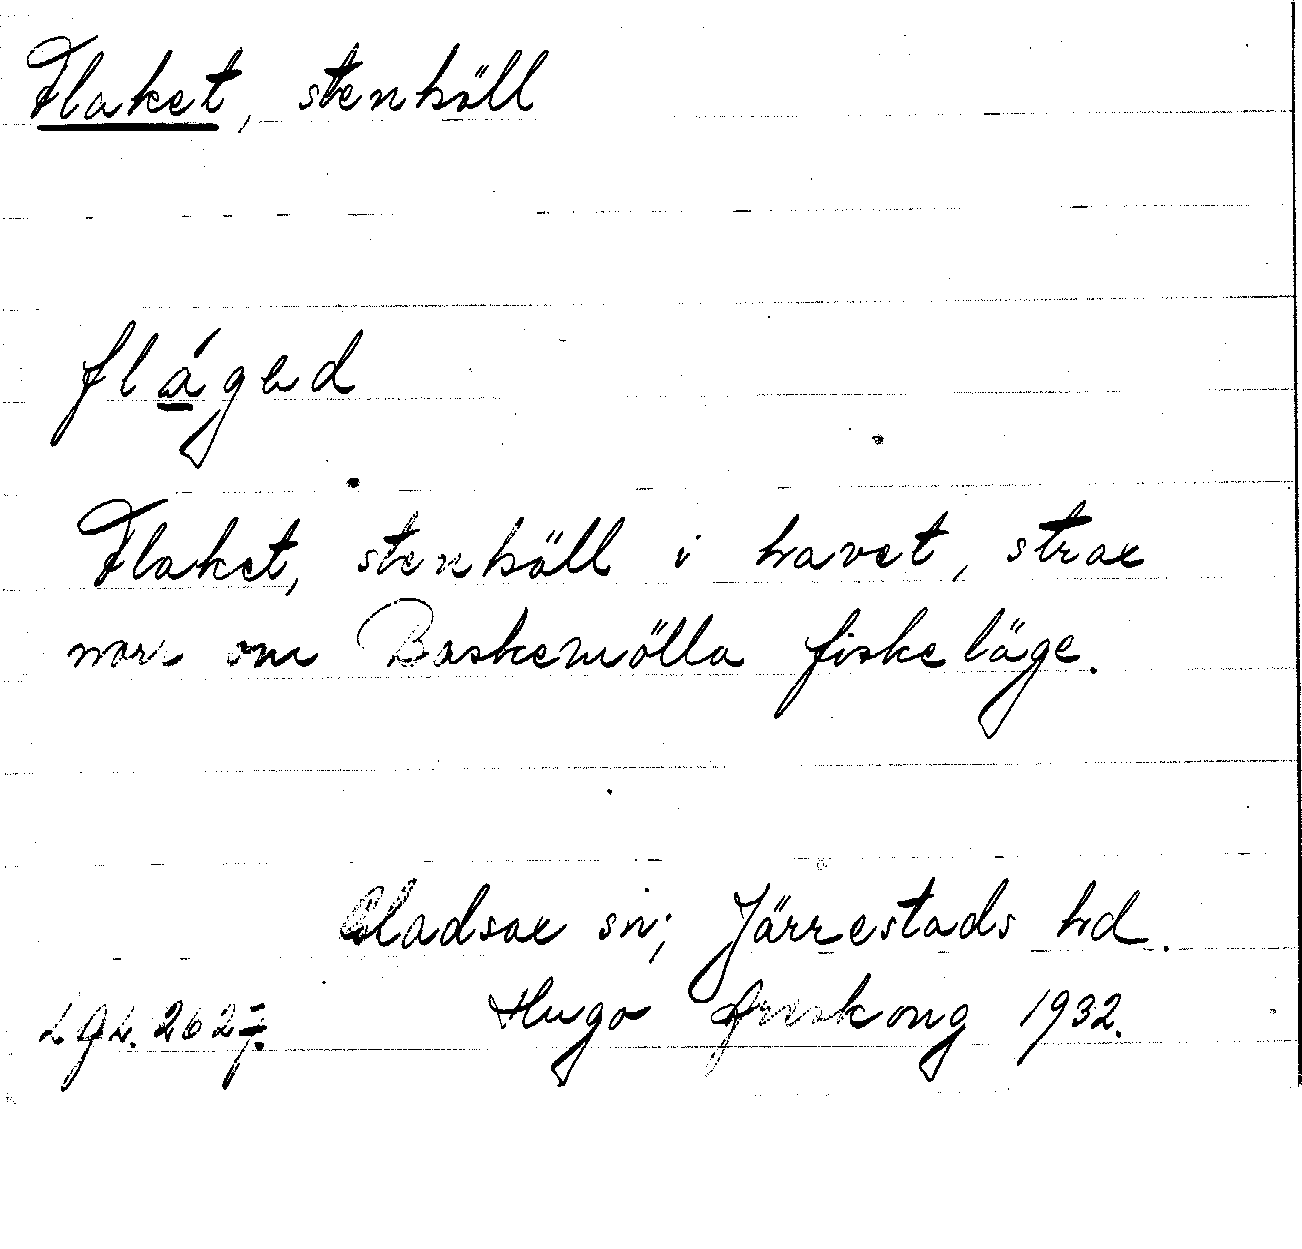 Flaket, stenhäll
flágəd
Flaket, stenhäll i havet, strax
norr om Baskemölla fiskeläge.
Gladsax sn; Järrestads hd.
Hugo Areskoug 1932.
LGL. 2627.